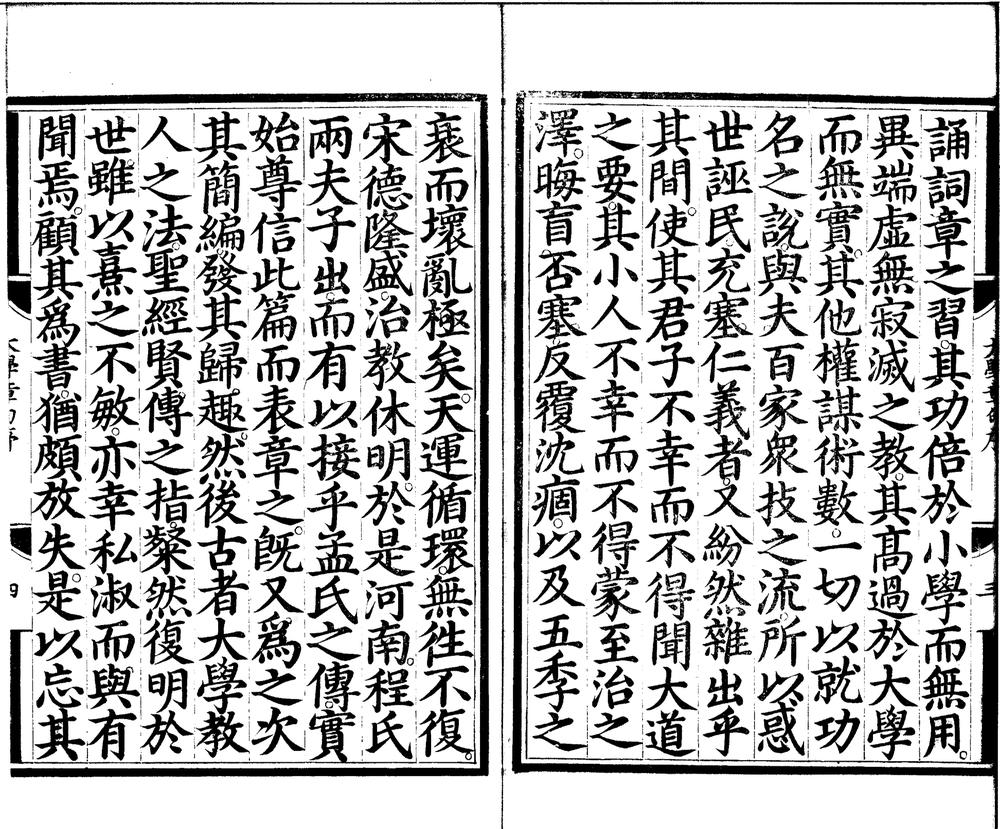 誦詞章之習。其功倍於小學而無用。
異端虛無寂滅之教。其髙過於大學
而無實。其他權謀術數。一切以就功
名之說。與夫百家衆技之流。所以惑
世誣民。充塞仁義者。又紛然雜出乎
其間。使其君子不幸而不得聞大道
之要。其小人不幸而不得蒙至治之
澤。晦盲否塞。反覆沈痼。以及五季之
衰。而壞亂極矣。天運循環。無徃不復。
宋德隆盛。治教休明。於是河南。程氏
兩夫子出。而有以接乎孟氏之傳。實
始尊信此篇而表章之。旣又爲之次
其簡編。發其歸趣。然後古者大學教
人之法。聖經賢傳之指。粲然復明於
世。雖以熹之不敏。亦幸私淑而與有
聞焉。顧其爲書。猶頗放失。是以忘其
四